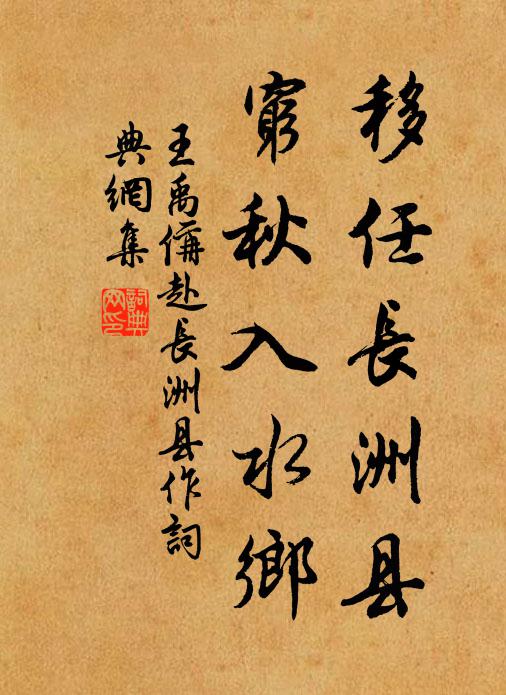 移任長洲县
窮秋入水鄉
王禹偁赴長洲县作詞
典網集
詞典
网印